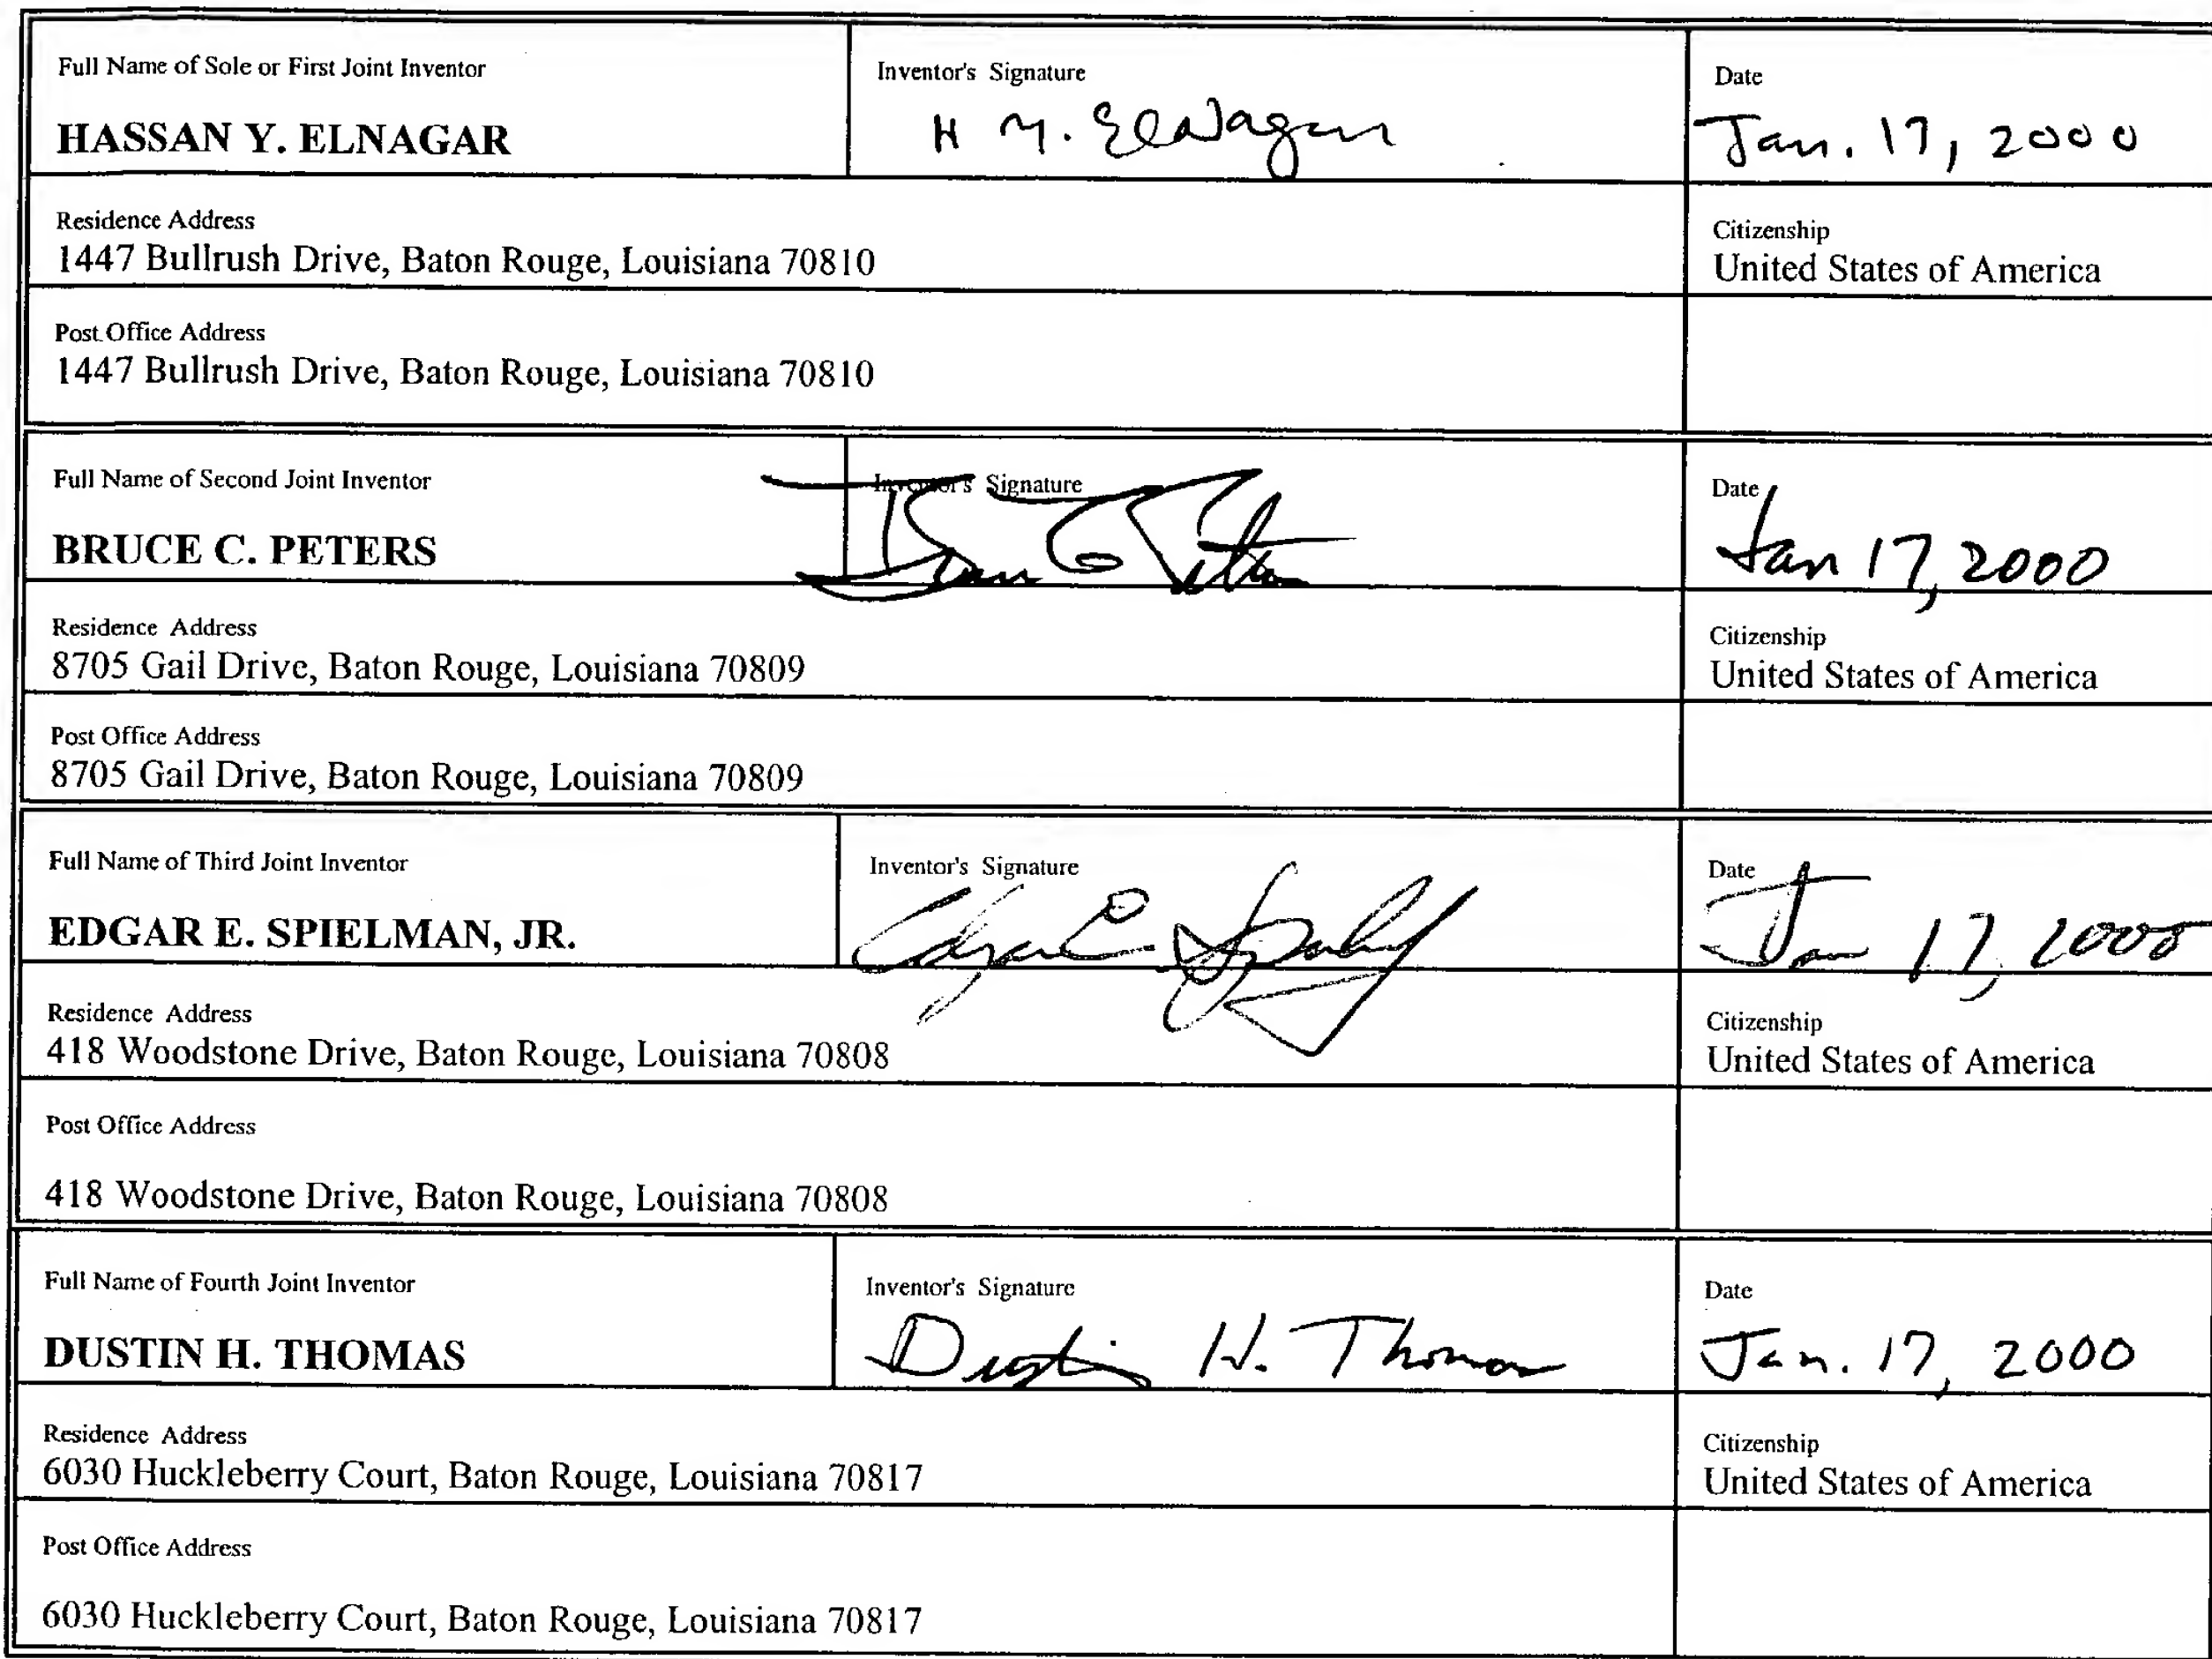 Full Name of Sole or First Joint Inventor
HASSAN Y. ELNAGAR
Inventor's Signature
H Y. ElNagar
Date
Jan. 17, 2000
Residence Address
1447 Bullrush Drive, Baton Rouge, Louisiana 70810
Citizenship
United States of America
Post Office Address
1447 Bullrush Drive, Baton Rouge, Louisiana 70810
Full Name of Second Joint Inventor
BRUCE C. PETERS
Inventor's Signature
Date
Jan 17, 2000
Residence Address
8705 Gail Drive, Baton Rouge, Louisiana 70809
Citizenship
United States of America
Post Office Address
8705 Gail Drive, Baton Rouge, Louisiana 70809
Full Name of Third Joint Inventor
EDGAR E. SPIELMAN, JR.
Inventor's Signature
Date
Jan 17, 2000
Residence Address
418 Woodstone Drive, Baton Rouge, Louisiana 70808
Citizenship
United States of America
Post Office Address
418 Woodstone Drive, Baton Rouge, Louisiana 70808
Full Name of Fourth Joint Inventor
DUSTIN H. THOMAS
Inventor's Signature
Dustin H. Thomas
Date
Jan. 17, 2000
Residence Address
6030 Huckleberry Court, Baton Rouge, Louisiana 70817
Citizenship
United States of America
Post Office Address
6030 Huckleberry Court, Baton Rouge, Louisiana 70817